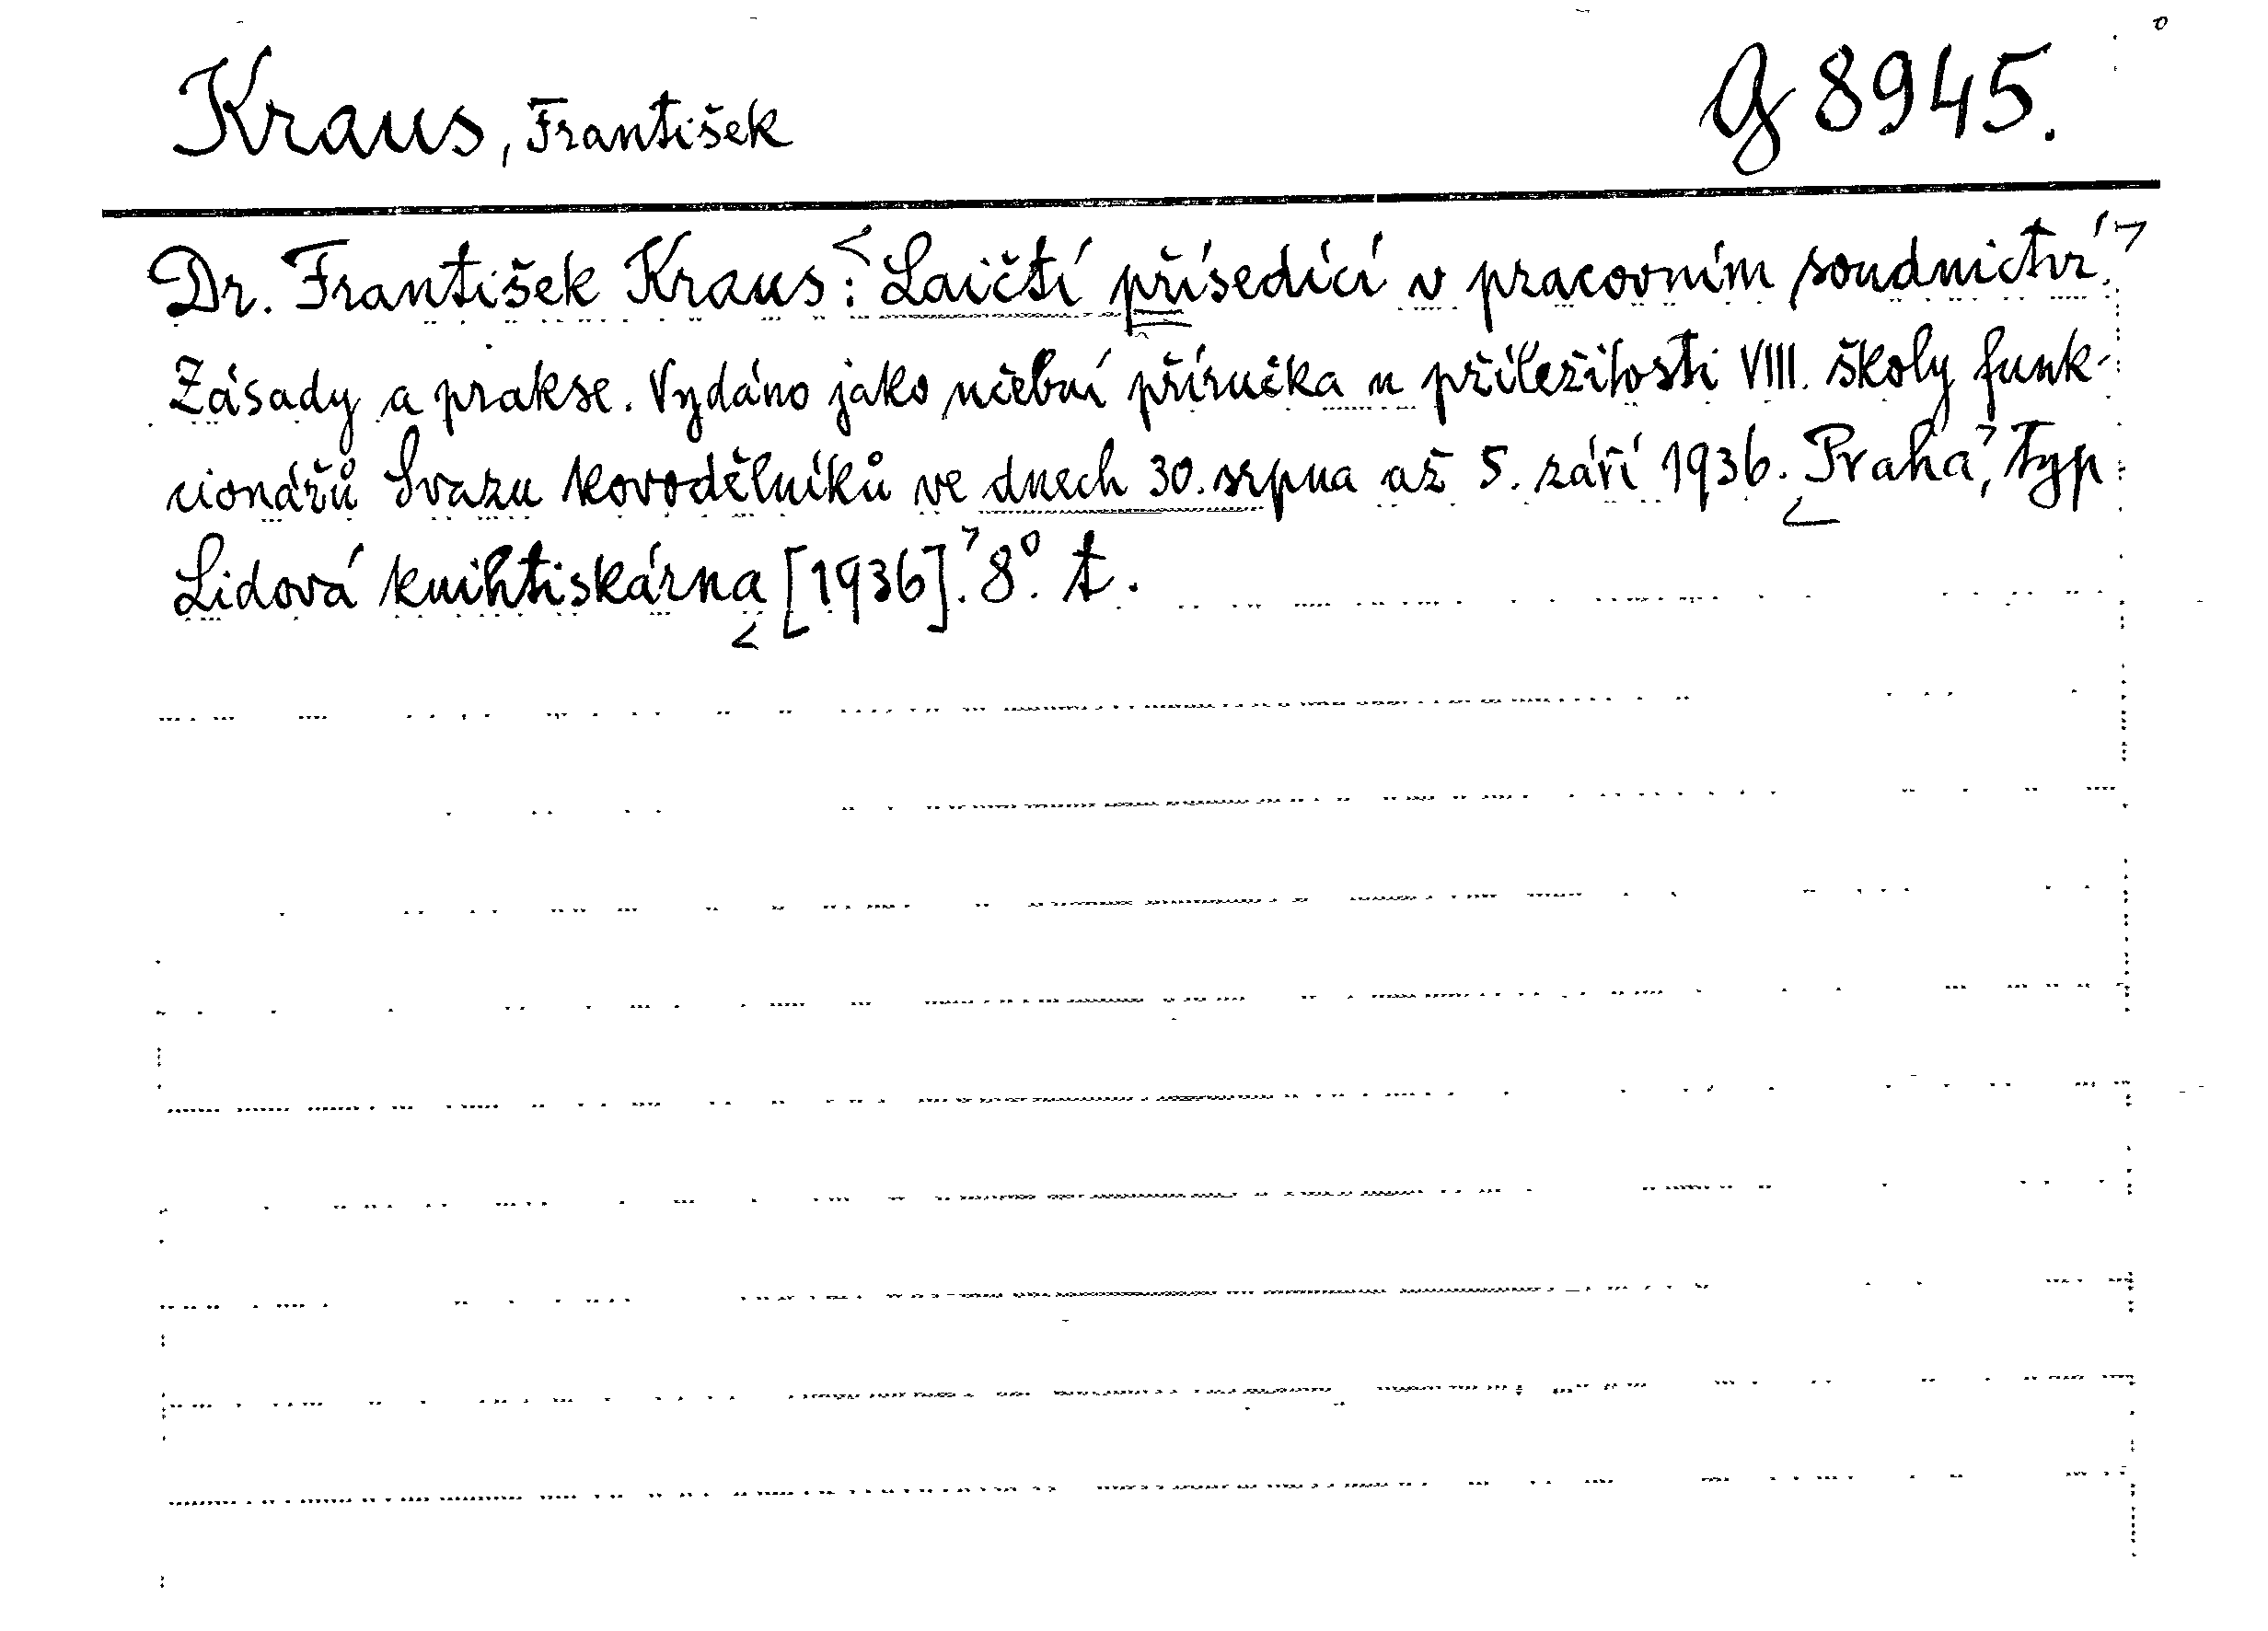 Kraus, František
G 8945.
Dr. František Kraus: <Laičtí přísedící v pracovním soudnictví.>
Zásady a prakse. Vydáno jako učební příručka u příležitosti VIII. školy funk-
cionářů Svazu kovodělníků ve dnech 30. srpna až 5. září 1936. <Praha>, Typ
Lidová knihtiskárna <[1936].> 8°. t.